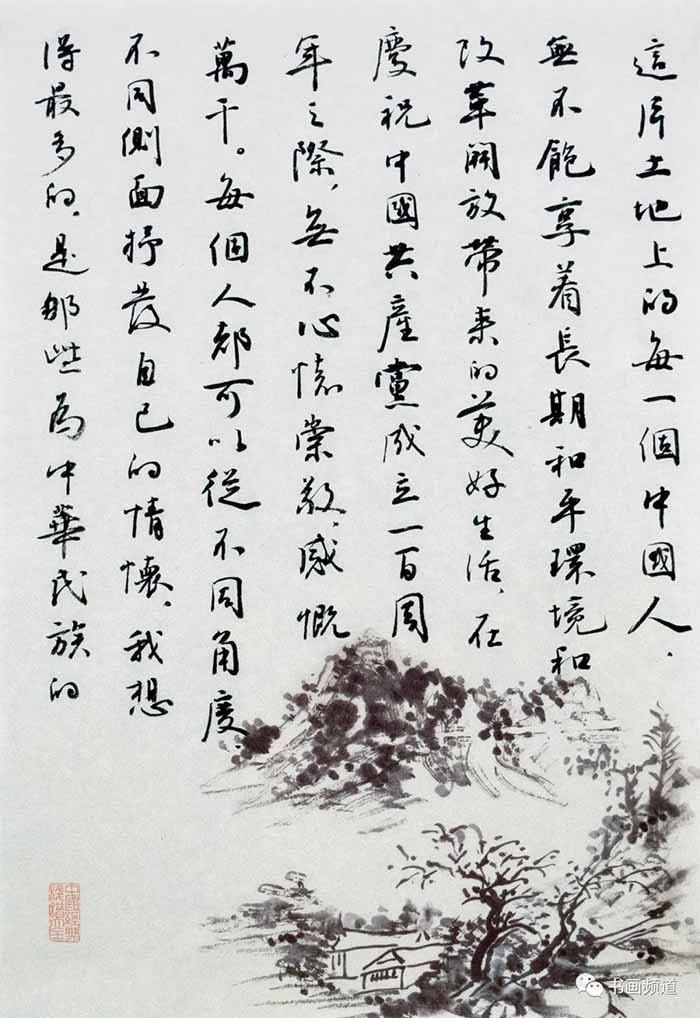 這片土地上的每一個中國人、
無不飽享着長期和平環境和
改革開放帶来的美好生活，在
慶祝中國共產黨成立一百周
年之際，無不心懷崇敬、感慨
萬千。每個人都可以從不同角度、
不同側面抒發自己的情懷，我想
得最多的，是那些為中華民族的
书画频道